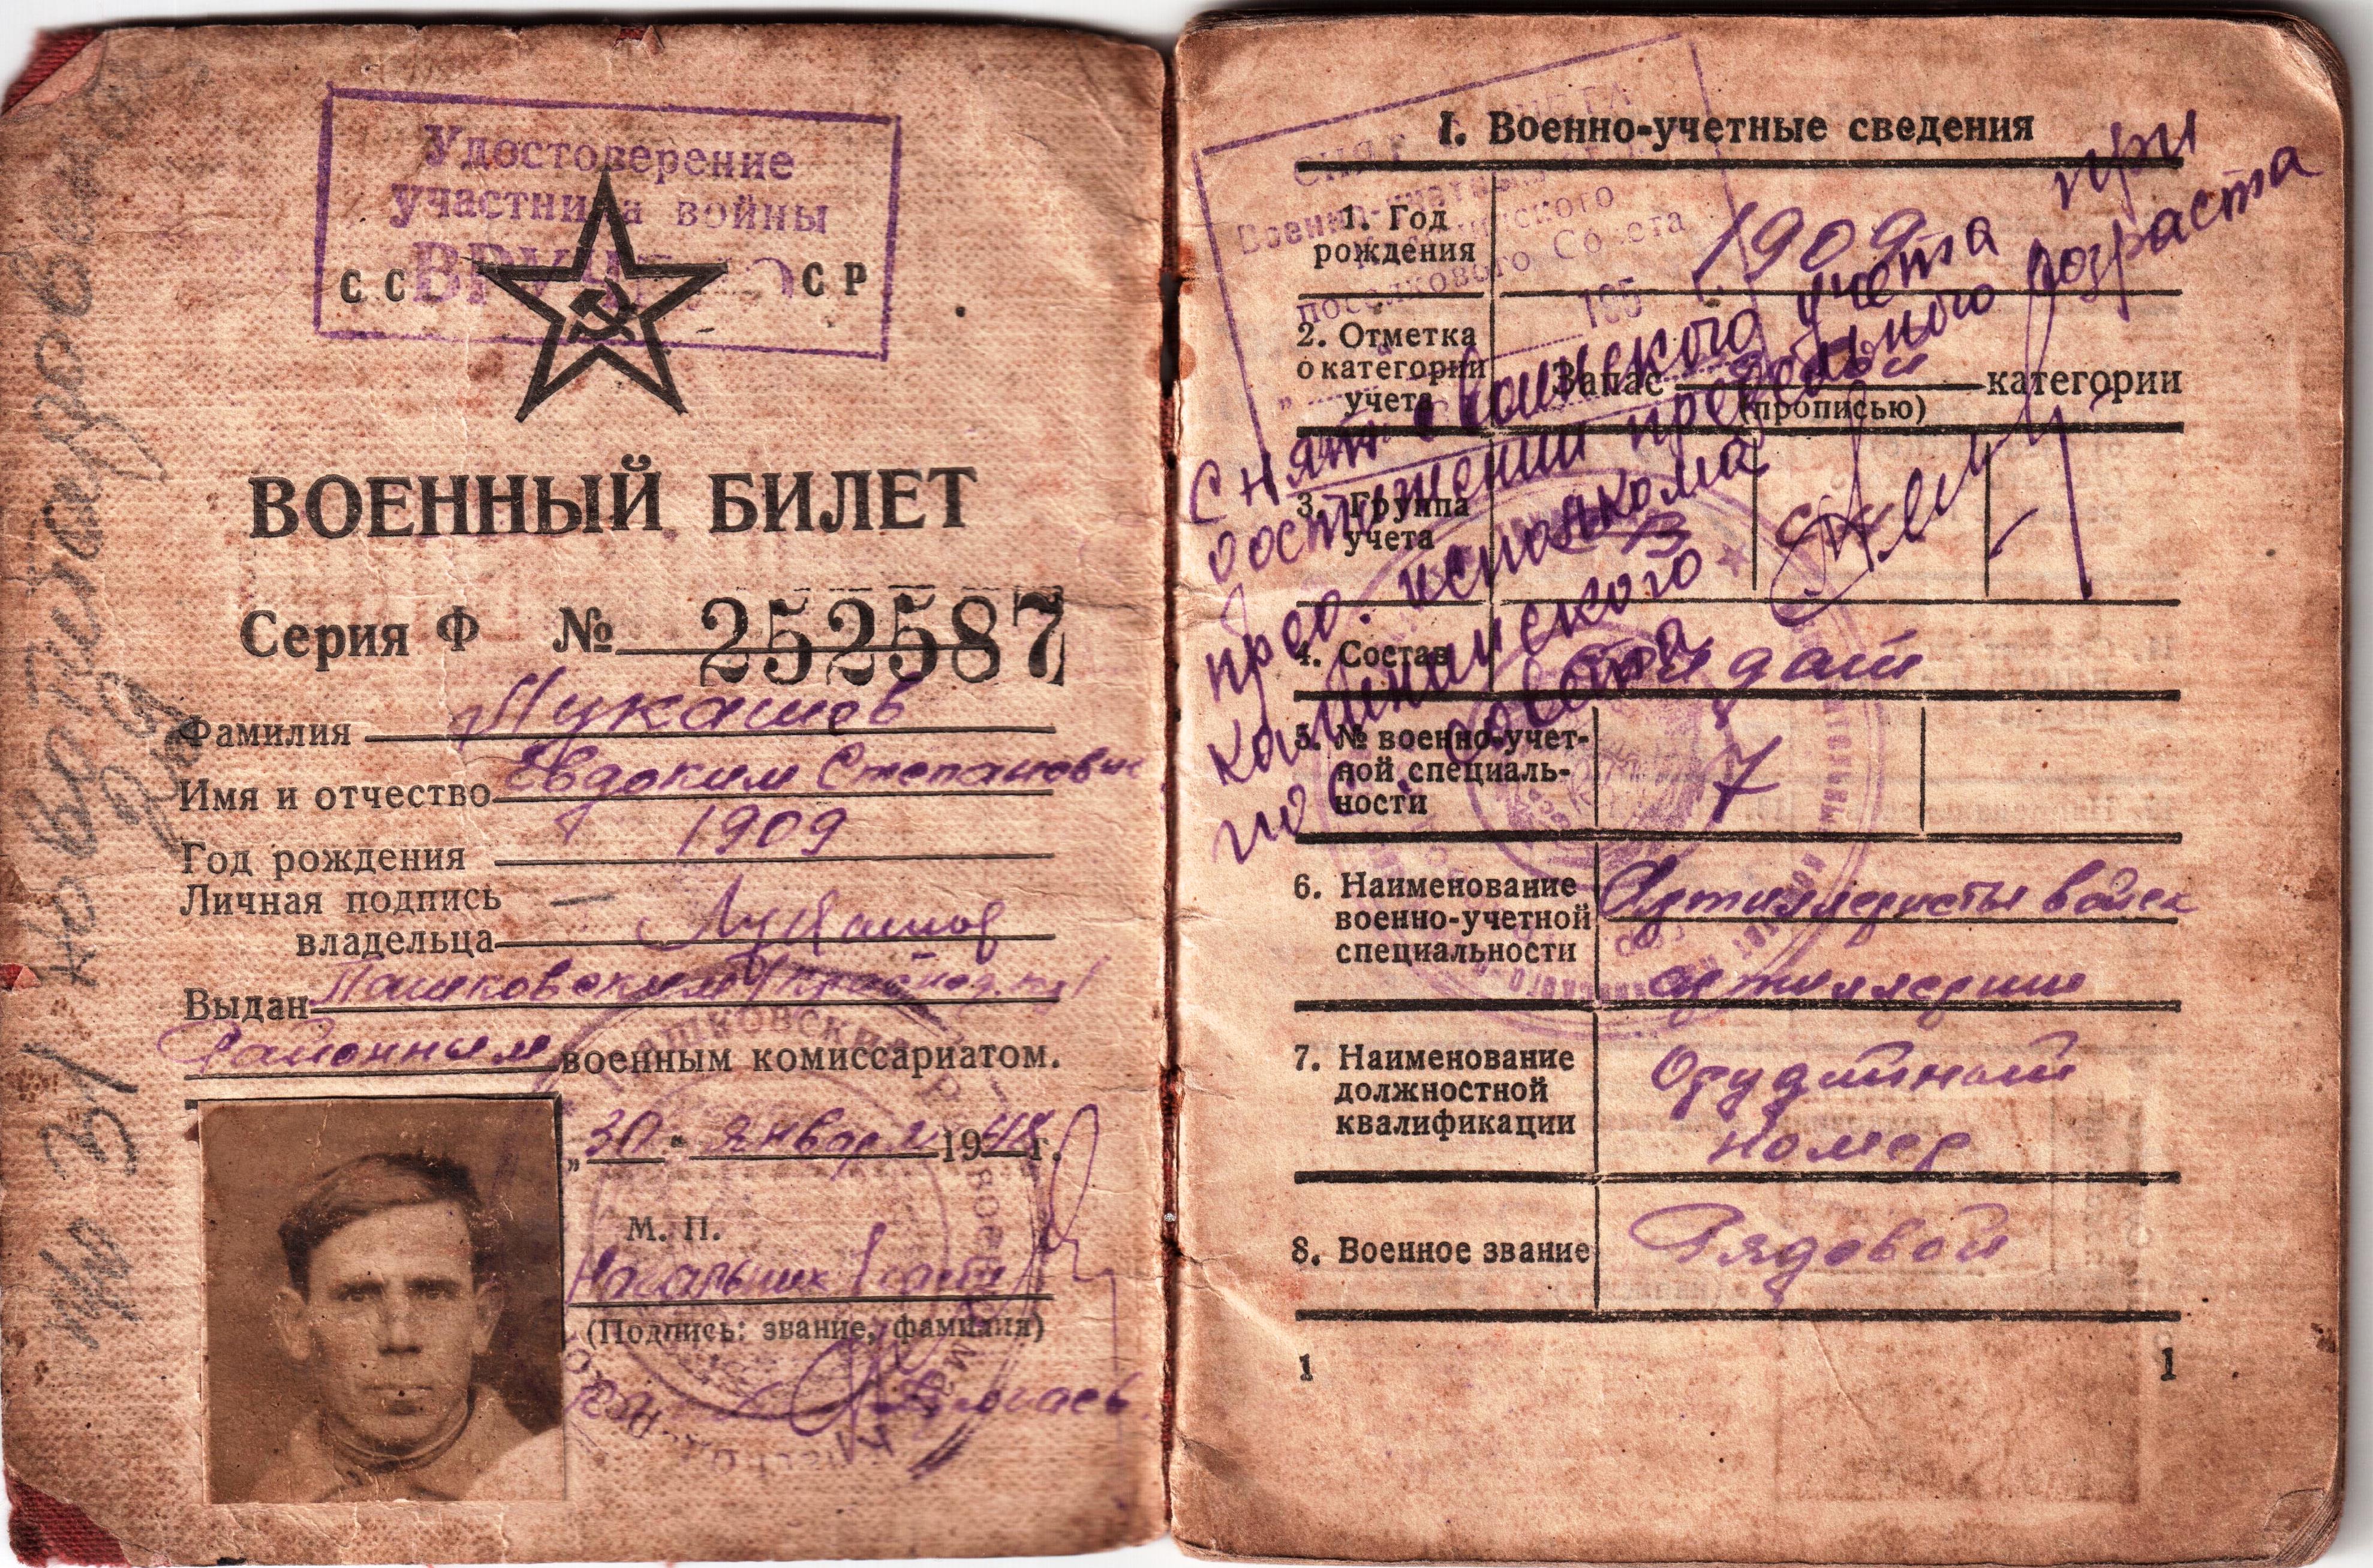 Удостоверение
участника войны
ВРУЧЕНО
СС СР
ВОЕННЫЙ БИЛЕТ
Серия Ф № 252587
Фамилия Лукашов
Имя и отчество Евдоким Степанович
Год рождения 1909
Личная подпись
владельца Лукашов
Выдан Пашковским
Районным военным комиссариатом.
„30" января 1948 г.
М. П.
Начальник 1 части
(Подпись: звание, фамилия)
I. Военно-учетные сведения
СНЯТ
Военно-учетный
поселкового Совета
195
1. Год
рождения 1909
2. Отметка
о категории
учета
Запас категории
(прописью)
Снят с воинского учета при
достижении предельного возраста
пред. исполкома
Калининского
пос. совета
3. Группа
учета
4. Состав Солдат
5. № военно-учет-
ной специаль-
ности 7
6. Наименование
военно-учетной
специальности
Артиллеристы войск
артиллерии
7. Наименование
должностной
квалификации
Орудийный
номер
8. Военное звание Рядовой
1 1